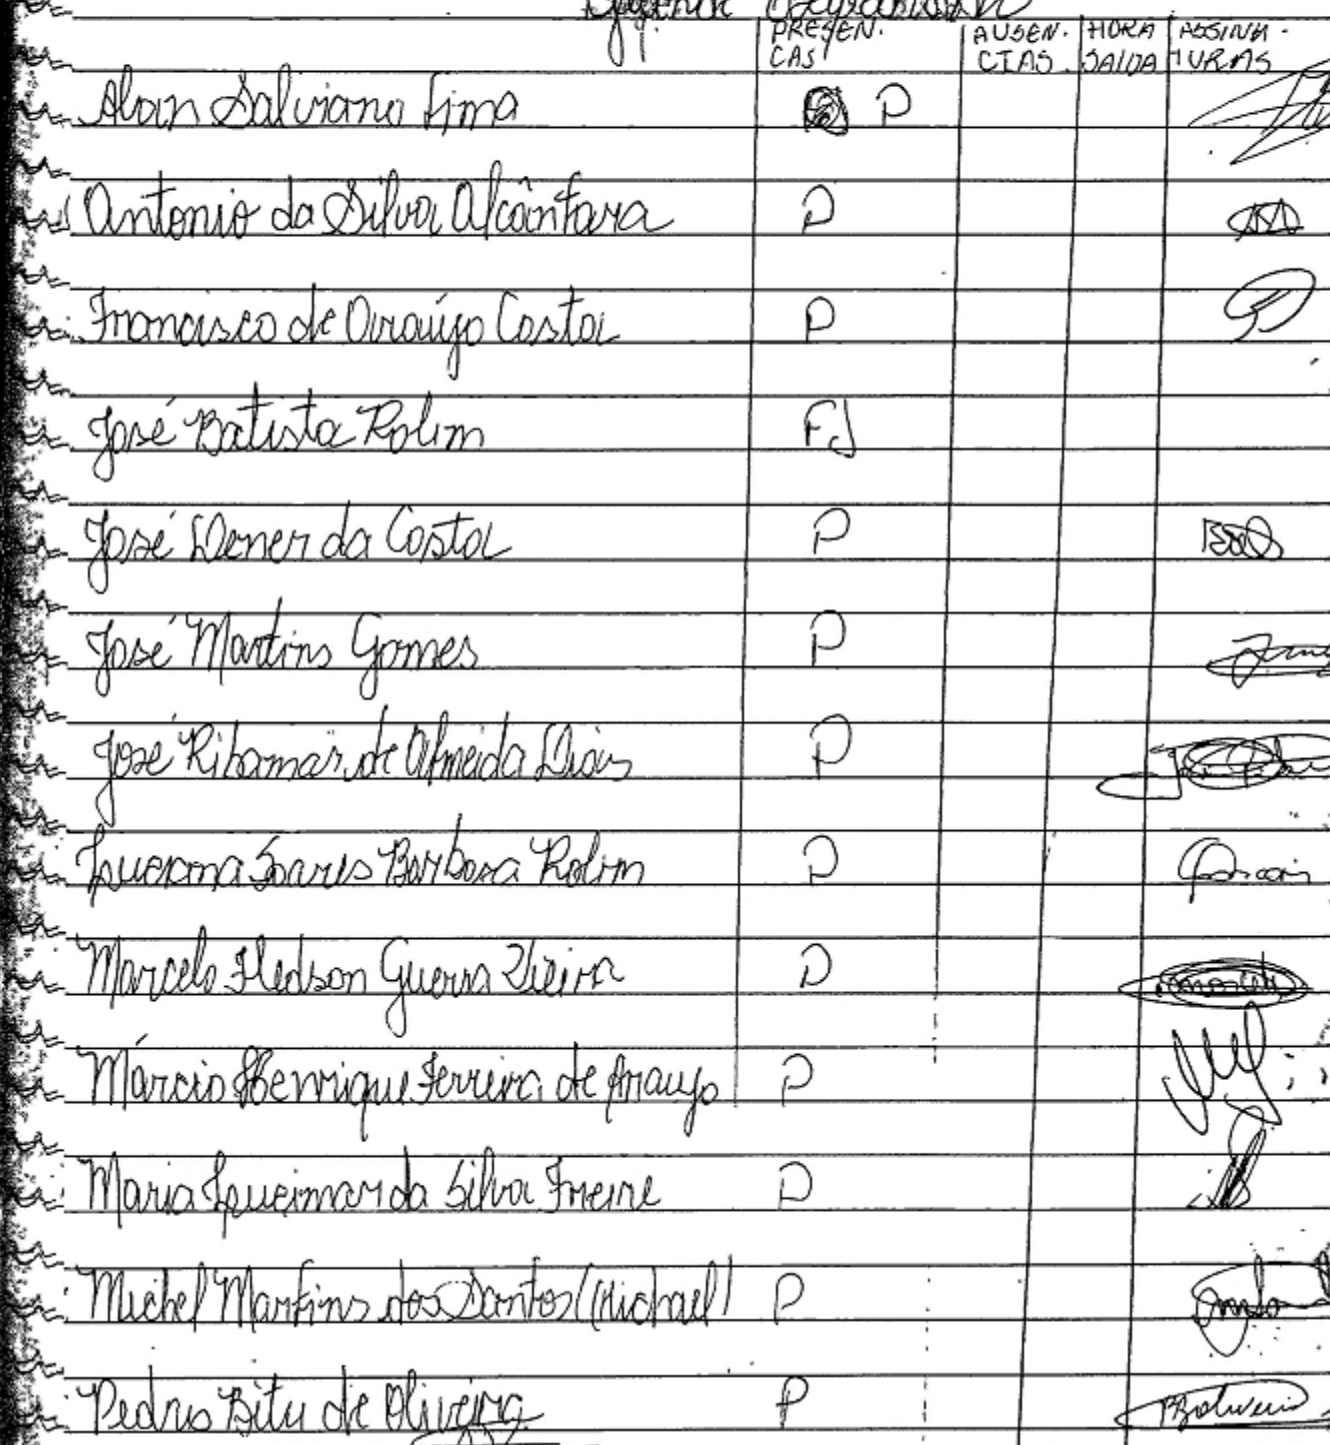 PRESEN. AUSEN. HORA ASSINA-
CAS CIAS SAIDA TURAS
Alan Salviano Lima P
Antonio da Silva Alcântara P
Francisco de Araújo Costa P
José Batista Rolim FJ
José Dener da Costa P
José Martins Gomes P
José Ribamar de Almeida Dias P
Lucema Soares Barbosa Rolim P
Marcelo Hedson Guerra Vieira P
Márcio Henrique Ferreira de Araujo P
Maria Lucimar da Silva Freire P
Michel Martins dos Santos (Michael) P
Pedro Bitu de Oliveira P